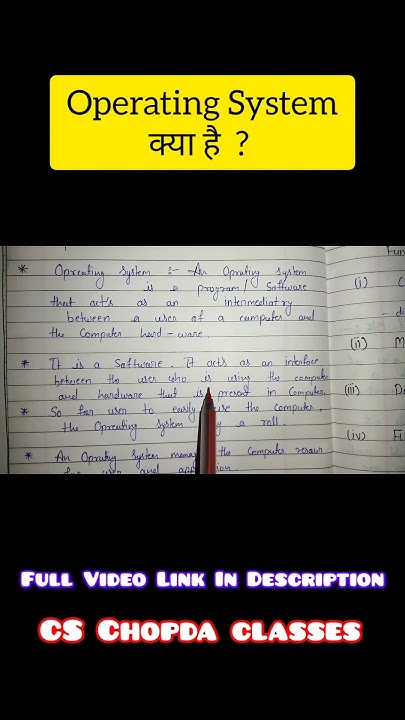 Operating System
क्या है ?
* Opreating System :- An Oprating System
is a program/ Software
that act's as an intermediatry
between a user of a computer and
the Computer hard-ware.
* It is a Software. It acts as an interface
between the user who is using the computer
and hardware that is present in Computer.
* So for user to easily use the computer,
the Opreating System a roll.
* An Oprating System the Computer
for user and
(i)
(ii) M
(iii) D
(iv) Fi
Full Video Link In Description
CS Chopda classes